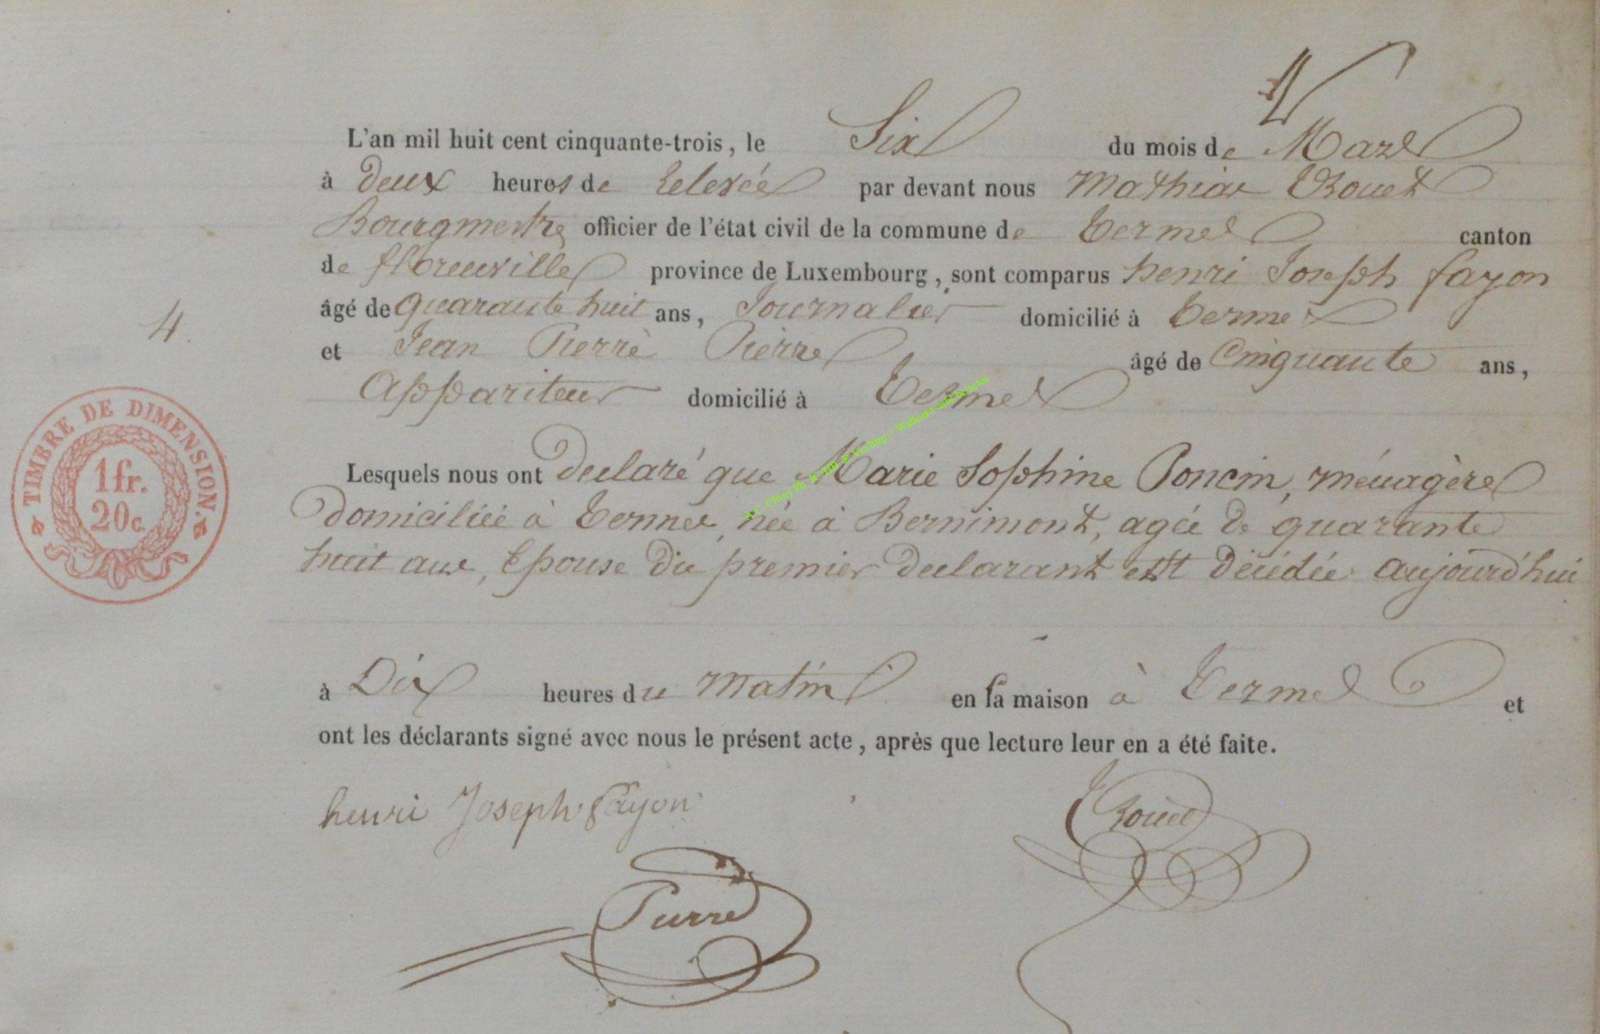 L'an mil huit cent cinquante-trois, le Six du mois de Mars
à deux heures de relevée par devant nous Mathias Rouet
Bourgmestre officier de l'état civil de la commune de Termes canton
de florenville province de Luxembourg, sont comparus henri Joseph fayon
âgé de quarante huit ans, Journalier domicilié à Termes
4.
et Jean Pierre Pierre âgé de Cinquante ans,
Appariteur domicilié à Termes
TIMBRE DE DIMENSION.
1 fr.
20 c.
Lesquels nous ont declaré que Marie Josphine Poncin, ménagère
domiciliée à Termes, née à Bernimont, agée de quarante
huit ans, Epouse du premier declarant est décédée aujourd'hui
à Dix heures du matin en sa maison à Termes et
ont les déclarants signé avec nous le présent acte, après que lecture leur en a été faite.
henri Joseph fayon
Rouet
Pierre